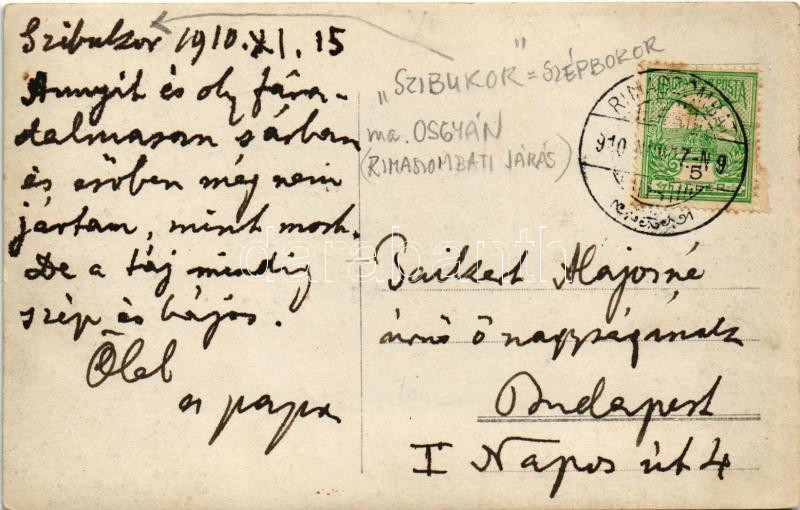 Szibukor 1910. XI. 15
Annyit és oly fára-
dalmasan sárban
és esőben még nem
jártam, mint most.
De a táj mindig
szép és bájos.
Ölel
a papa
„SZIBUKOR" = SZÉPBOKOR
ma. OSGYÁN
(RIMASZOMBATI JÁRÁS)
RIMASZOMBAT
910
7-N 9
5
Paikert Alajosné
úrnő ő nagyságának
Budapest
I Napos út 4
darabanth